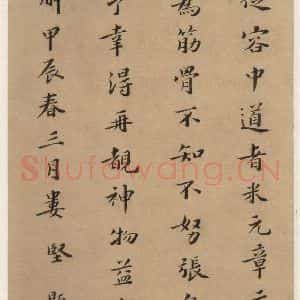 從容中道者米元章
為筋骨不知不努張
幸得再觀神物益
甲辰春三月婁堅
Shufawang.CN